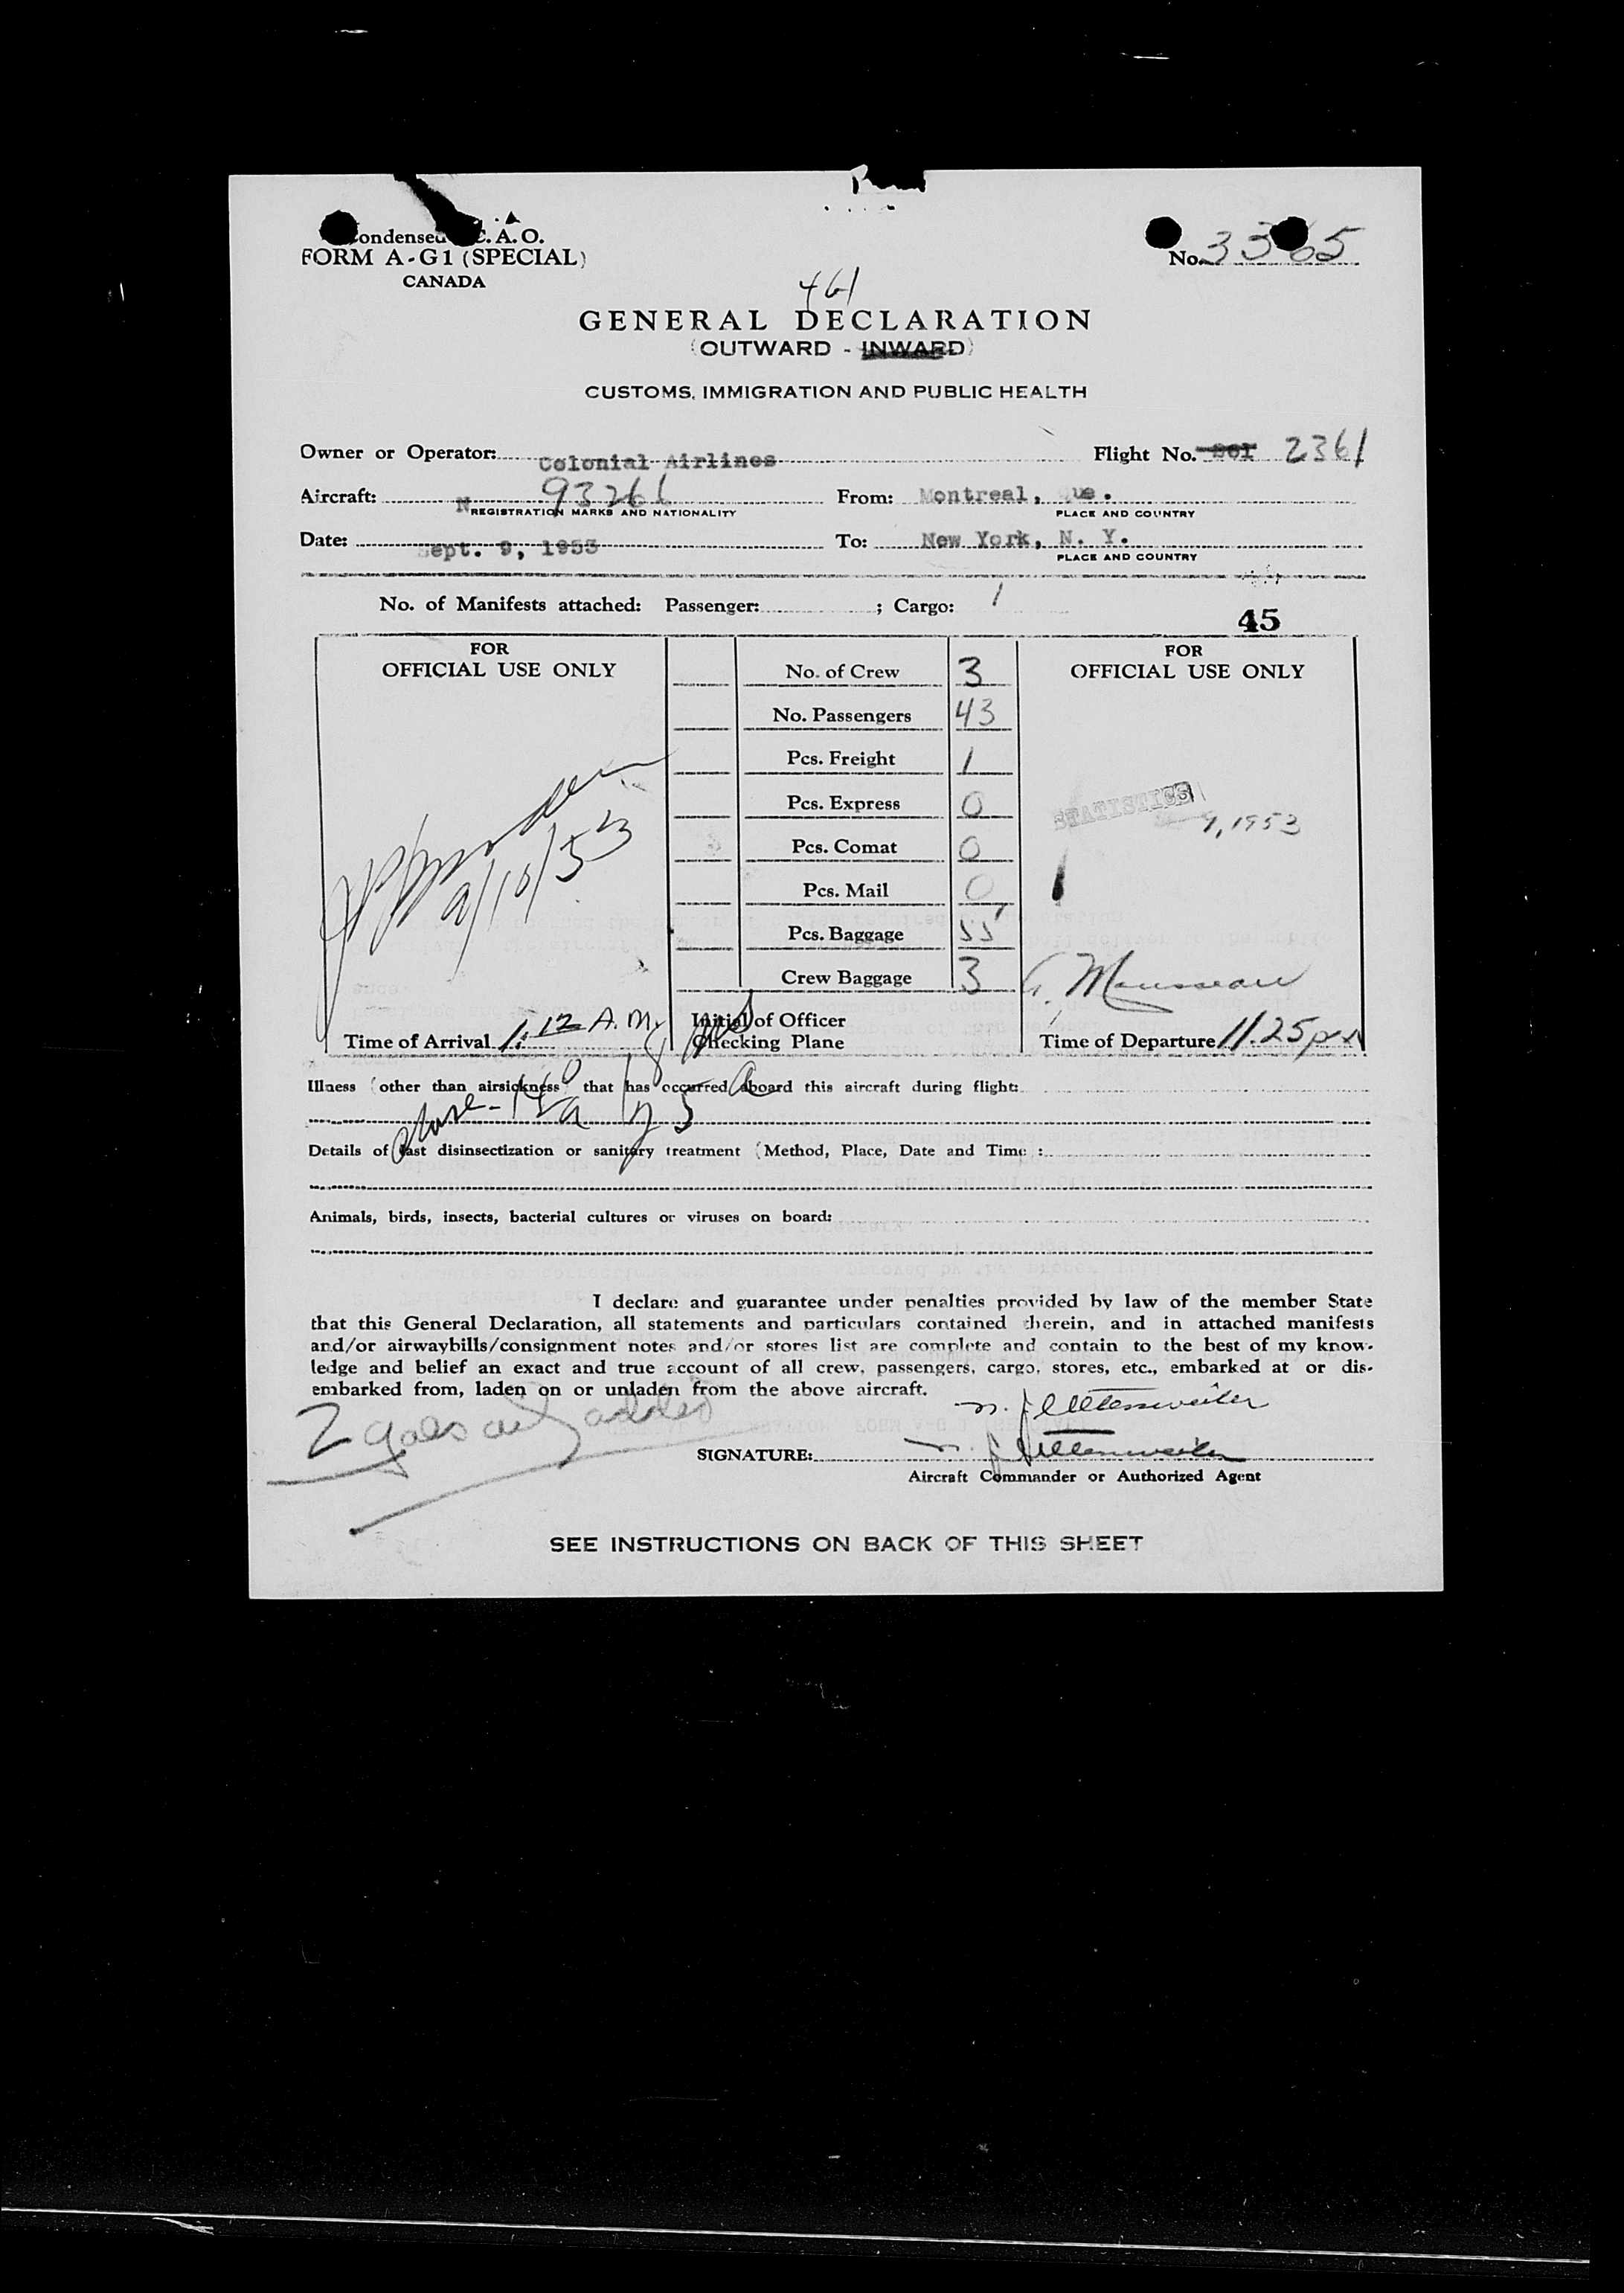 Condensed I.C.A.O.
FORM A-G1 (SPECIAL)
CANADA
No. 3365
461
GENERAL DECLARATION
(OUTWARD - INWARD)
CUSTOMS, IMMIGRATION AND PUBLIC HEALTH
Owner or Operator: Colonial Airlines Flight No. 2361
Aircraft: N 93261 From: Montreal, Que.
REGISTRATION MARKS AND NATIONALITY PLACE AND COUNTRY
Date: Sept. 9, 1953 To: New York, N. Y.
PLACE AND COUNTRY
No. of Manifests attached: Passenger: ; Cargo: 1
45
FOR
OFFICIAL USE ONLY
9/10/53
Time of Arrival 1:12 A.M.
No. of Crew 3
No. Passengers 43
Pcs. Freight 1
Pcs. Express 0
Pcs. Comat 0
Pcs. Mail 0
Pcs. Baggage 55
Crew Baggage 3
Initial of Officer
Checking Plane
FOR
OFFICIAL USE ONLY
STATISTICS
9, 1953
Time of Departure 11.25 pm
Illness (other than airsickness) that has occurred aboard this aircraft during flight:
Details of last disinsectization or sanitary treatment (Method, Place, Date and Time :
Animals, birds, insects, bacterial cultures or viruses on board:
I declare and guarantee under penalties provided by law of the member State
that this General Declaration, all statements and particulars contained therein, and in attached manifests
and/or airwaybills/consignment notes and/or stores list are complete and contain to the best of my know-
ledge and belief an exact and true account of all crew, passengers, cargo, stores, etc., embarked at or dis-
embarked from, laden on or unladen from the above aircraft.
2 gals oil added
SIGNATURE:
Aircraft Commander or Authorized Agent
SEE INSTRUCTIONS ON BACK OF THIS SHEET